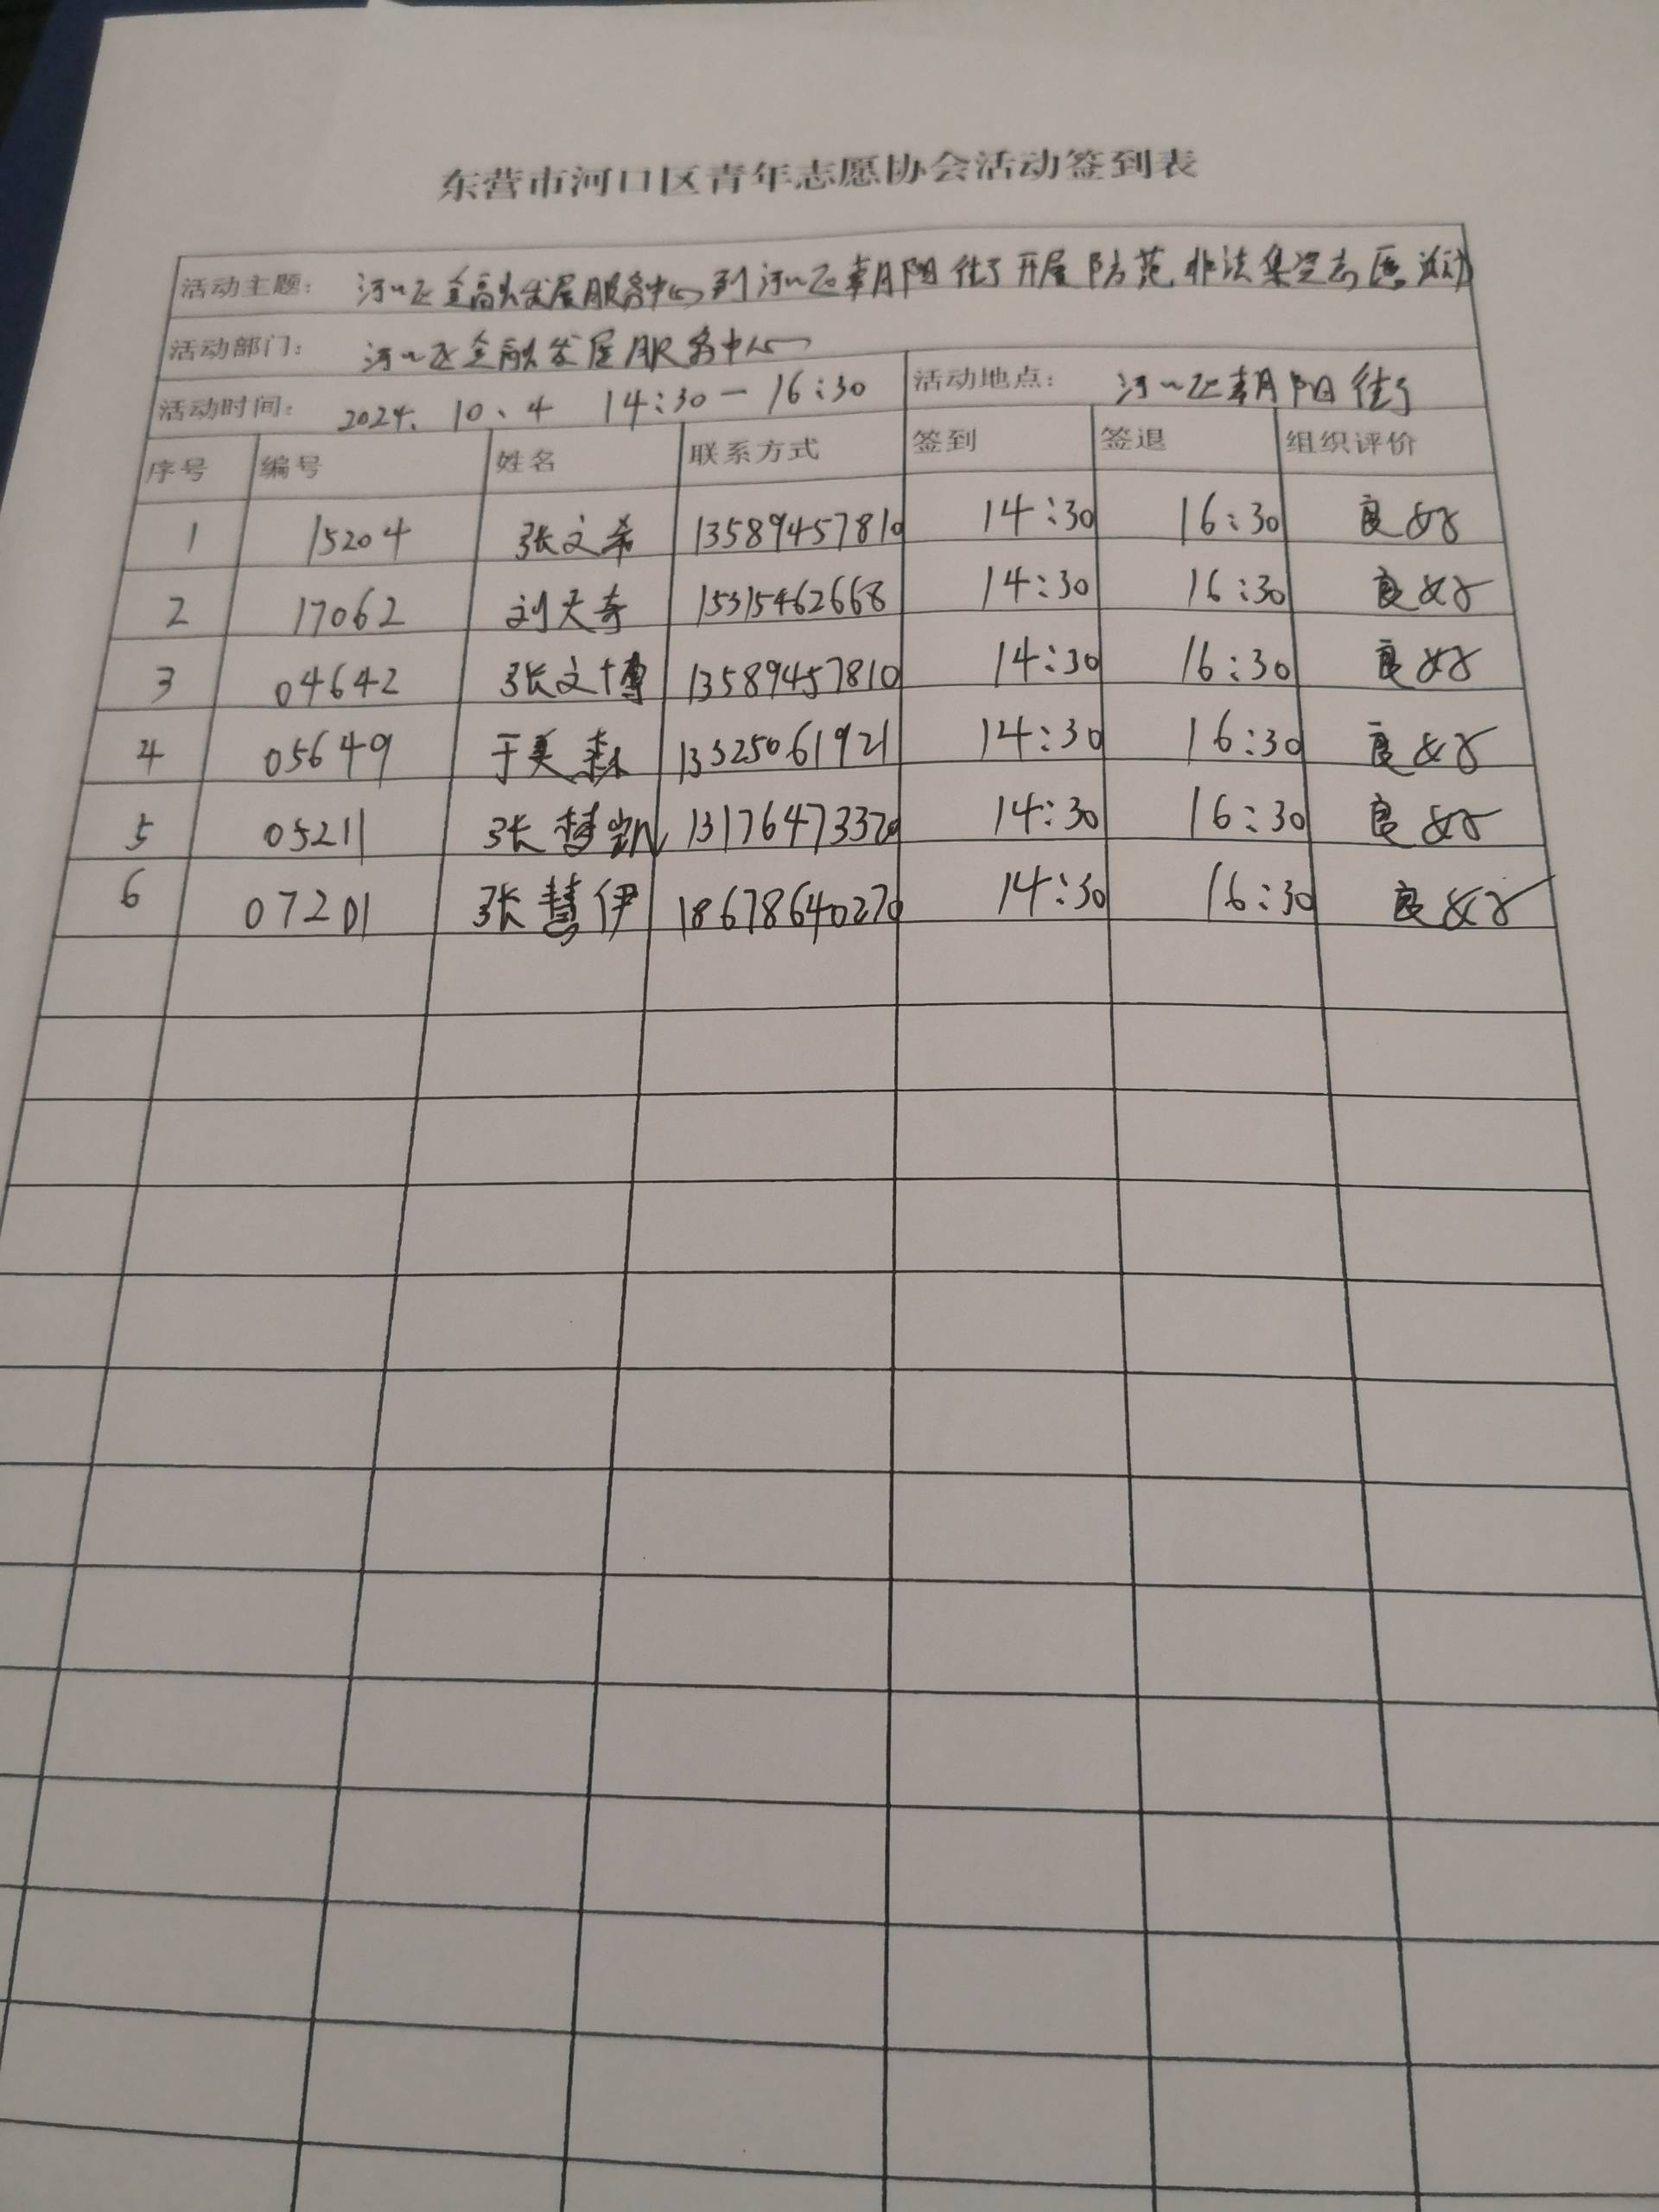 东营市河口区青年志愿协会活动签到表
活动主题: 河口区金融发展服务中心到河口区朝阳街了开展防范非法集资志愿活动
活动部门: 河口区金融发展服务中心
活动时间: 2024.10、4 14:30-16:30 活动地点: 河口区朝阳街了
序号 编号 姓名 联系方式 签到 签退 组织评价
1 15204 张文希 13589457810 14:30 16:30 良好
2 17062 刘天奇 15315462668 14:30 16:30 良好
3 04642 张文博 13589457810 14:30 16:30 良好
4 05649 于美森 13325061921 14:30 16:30 良好
5 05211 张梦凯 13176473370 14:30 16:30 良好
6 07201 张慧伊 18678640270 14:30 16:30 良好